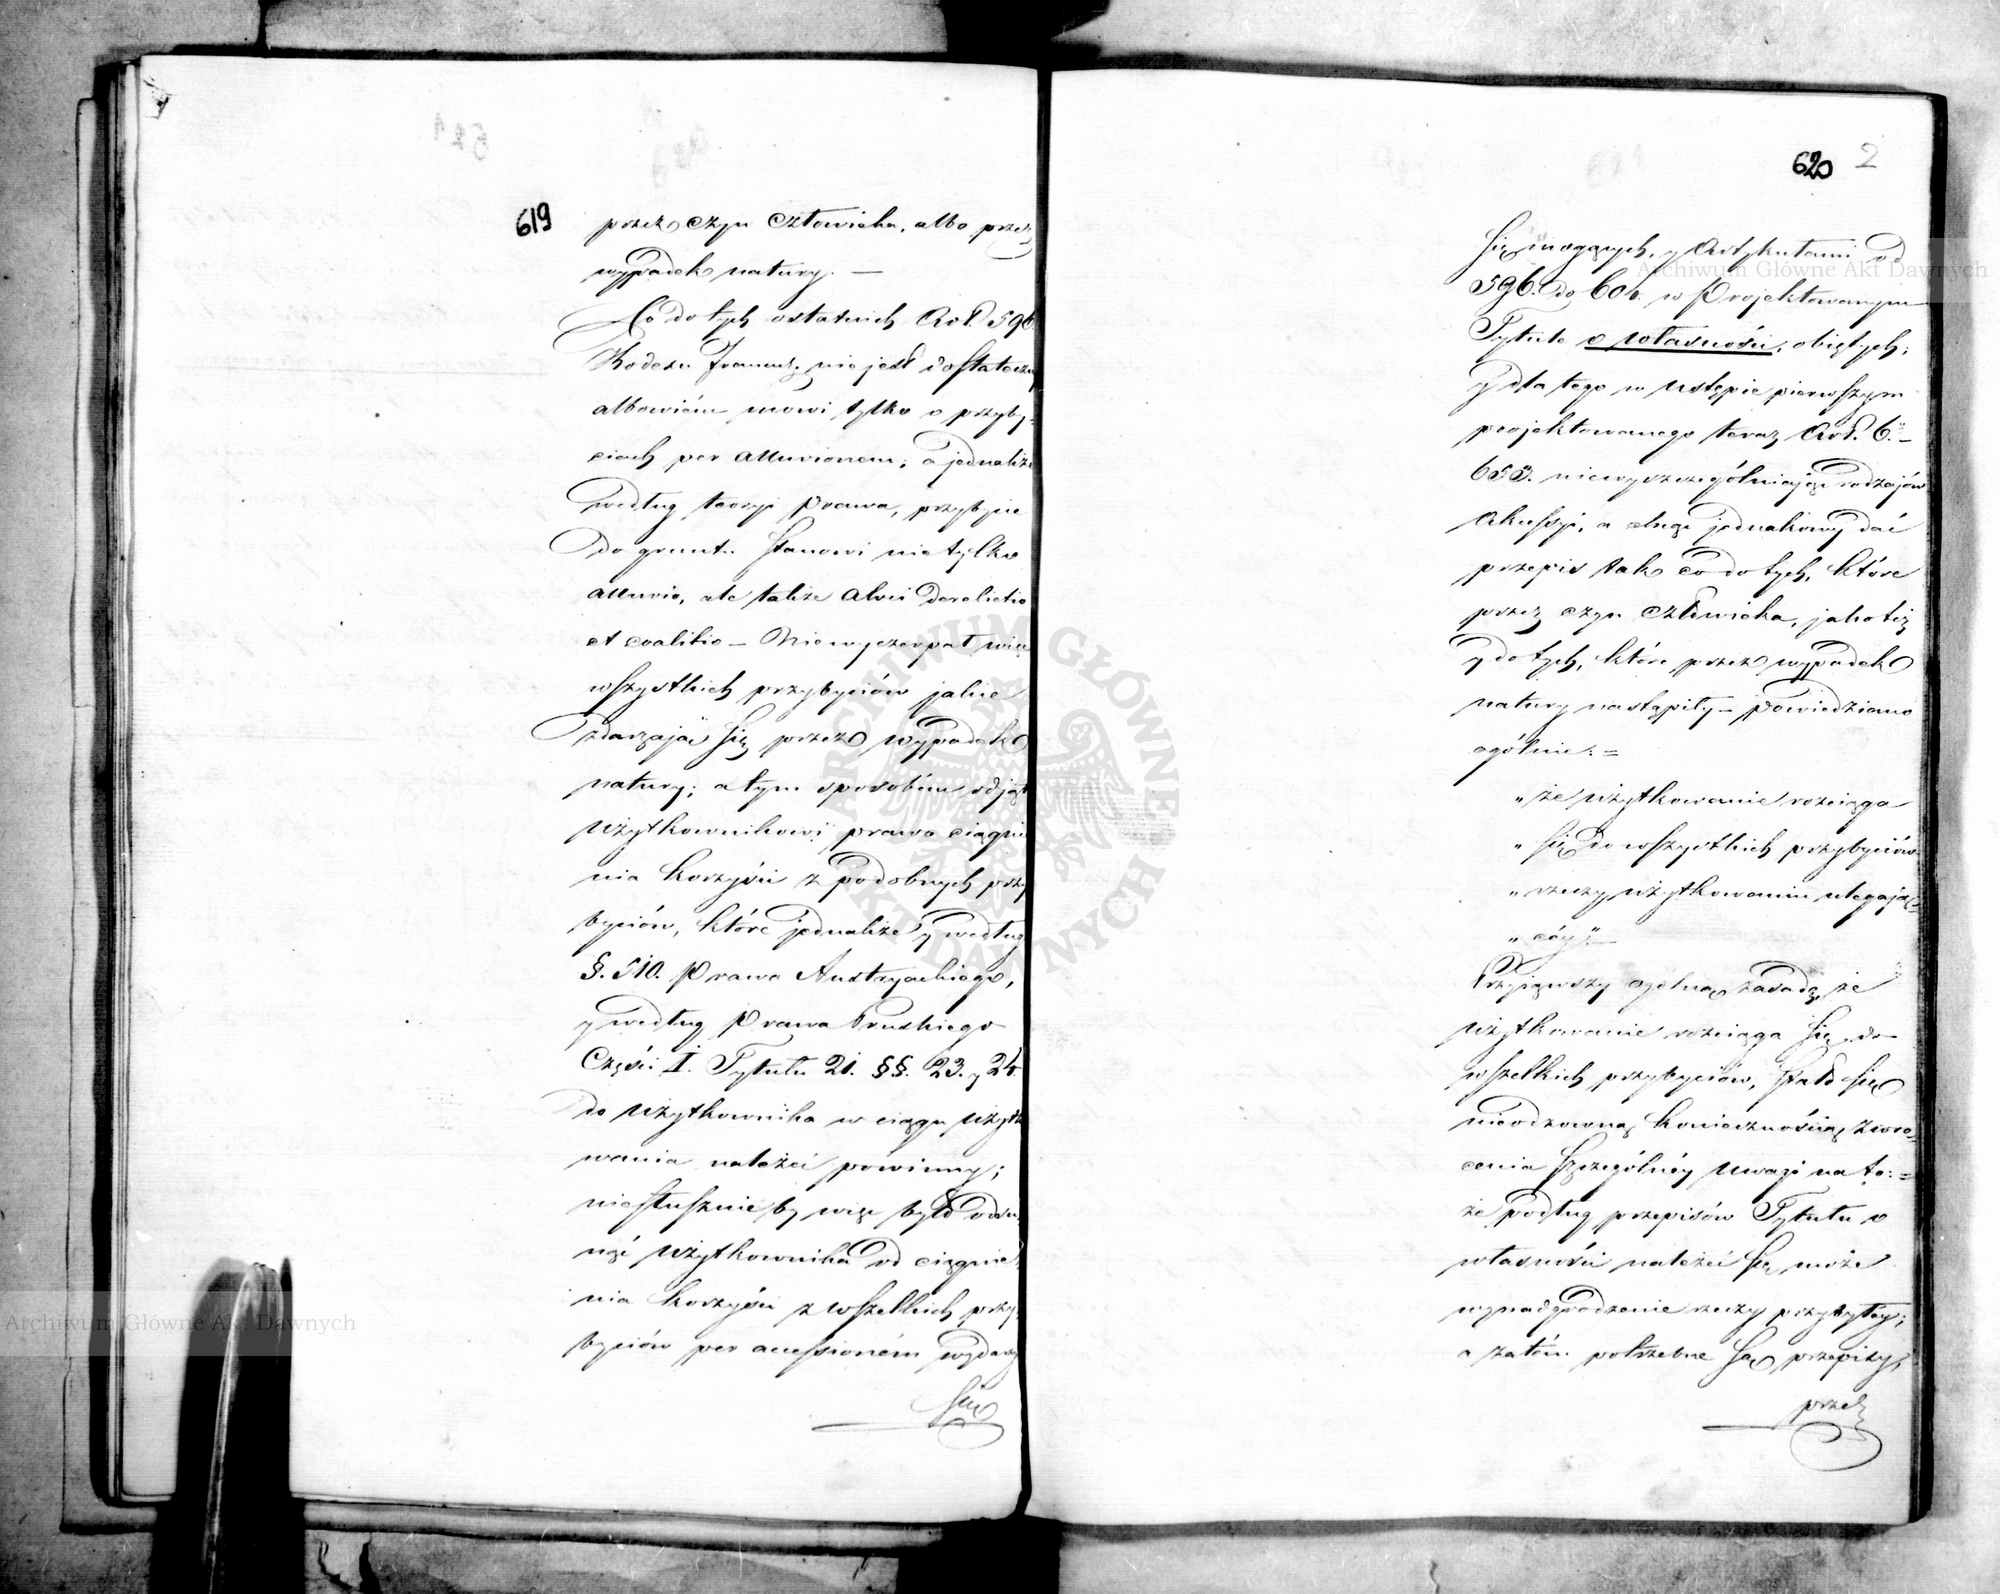 619
przez czyn Człowieka, albo przez
wypadek natury. —
Co do tych ostatnich Art. 596
Kodexu francuz. nie jest dostateczny
albowiém mowi tylko o przyby-
ciach per alluvionem; a jednakże
według teoryi Prawa, przybycie
do gruntu stanowi nie tylko
alluvio, ale także alvei derelictio
et coalitio — Nie wyczerpał więc
wszystkich przybyciów jakie
zdarzają się przez wypadek
natury; a tym sposobem odjął
użytkownikowi prawo ciągnie
nia korzyści z podobnych przy
byciów, które jednakże y według
§. 510. Prawa Austryackiego,
y według Prawa Pruskiego
Części I. Tytułu 21. §§. 23. y 24.
do użytkownika w ciągu użytko
wania należeć powinny;
niesłusznie by więc było odsu
nąć użytkownika od ciągnie
nia korzyści z wszelkich przy
byciów per accessionem wydarzyć
się
620 2
się mogących, y Artykułami od
596. do 604. w Projektowanym
Tytule o własności, objętych;
y dla tego w ustępie pierwszym
projektowanego teraz Art. 6.
653. niewyszczególniając rodzajów
Akcessyi, a chcąc jednakowy dać
przepis tak co do tych, które
przez czyn człowieka, jako też
y do tych, które przez wypadek
natury nastąpiły — powiedziano
ogólnie: =
„ że użytkowanie rozciąga
„ się do wszystkich przybyciów
„ rzeczy użytkowaniu ulegają-
„ céy". —
Przyjąwszy ogólną zasadę, że
użytkowanie rozciąga się do
wszelkich przybyciów, stało się
nieodzowną koniecznością zwró-
cenia szczególnéy uwagi na to: =
że podług przepisów Tytułu o
własności należeć się może
wynadgrodzenie rzeczy przybytey;
a zatém potrzebne są przepisy,
przez
Archiwum Główne Akt Dawnych
Archiwum Główne Akt Dawnych
ARCHIWUM GŁÓWNE
AKT DAWNYCH